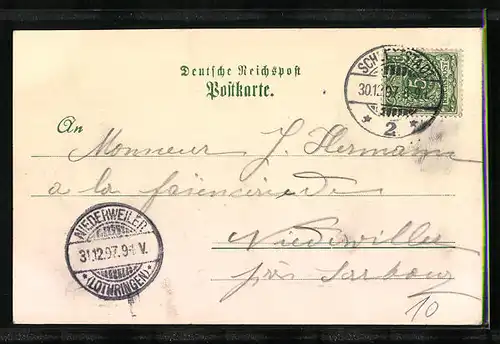 Deutsche Reichspost
Postkarte.
SCHLETTSTADT
30.12.97. 9-10 V.
* 2. *
An
Monsieur J. Hermann
a la faiencerie de
Niederviller
près Sarbourg
NIEDERWEILER
31.12.97. 9-1 V.
* (LOTHRINGEN) *
10